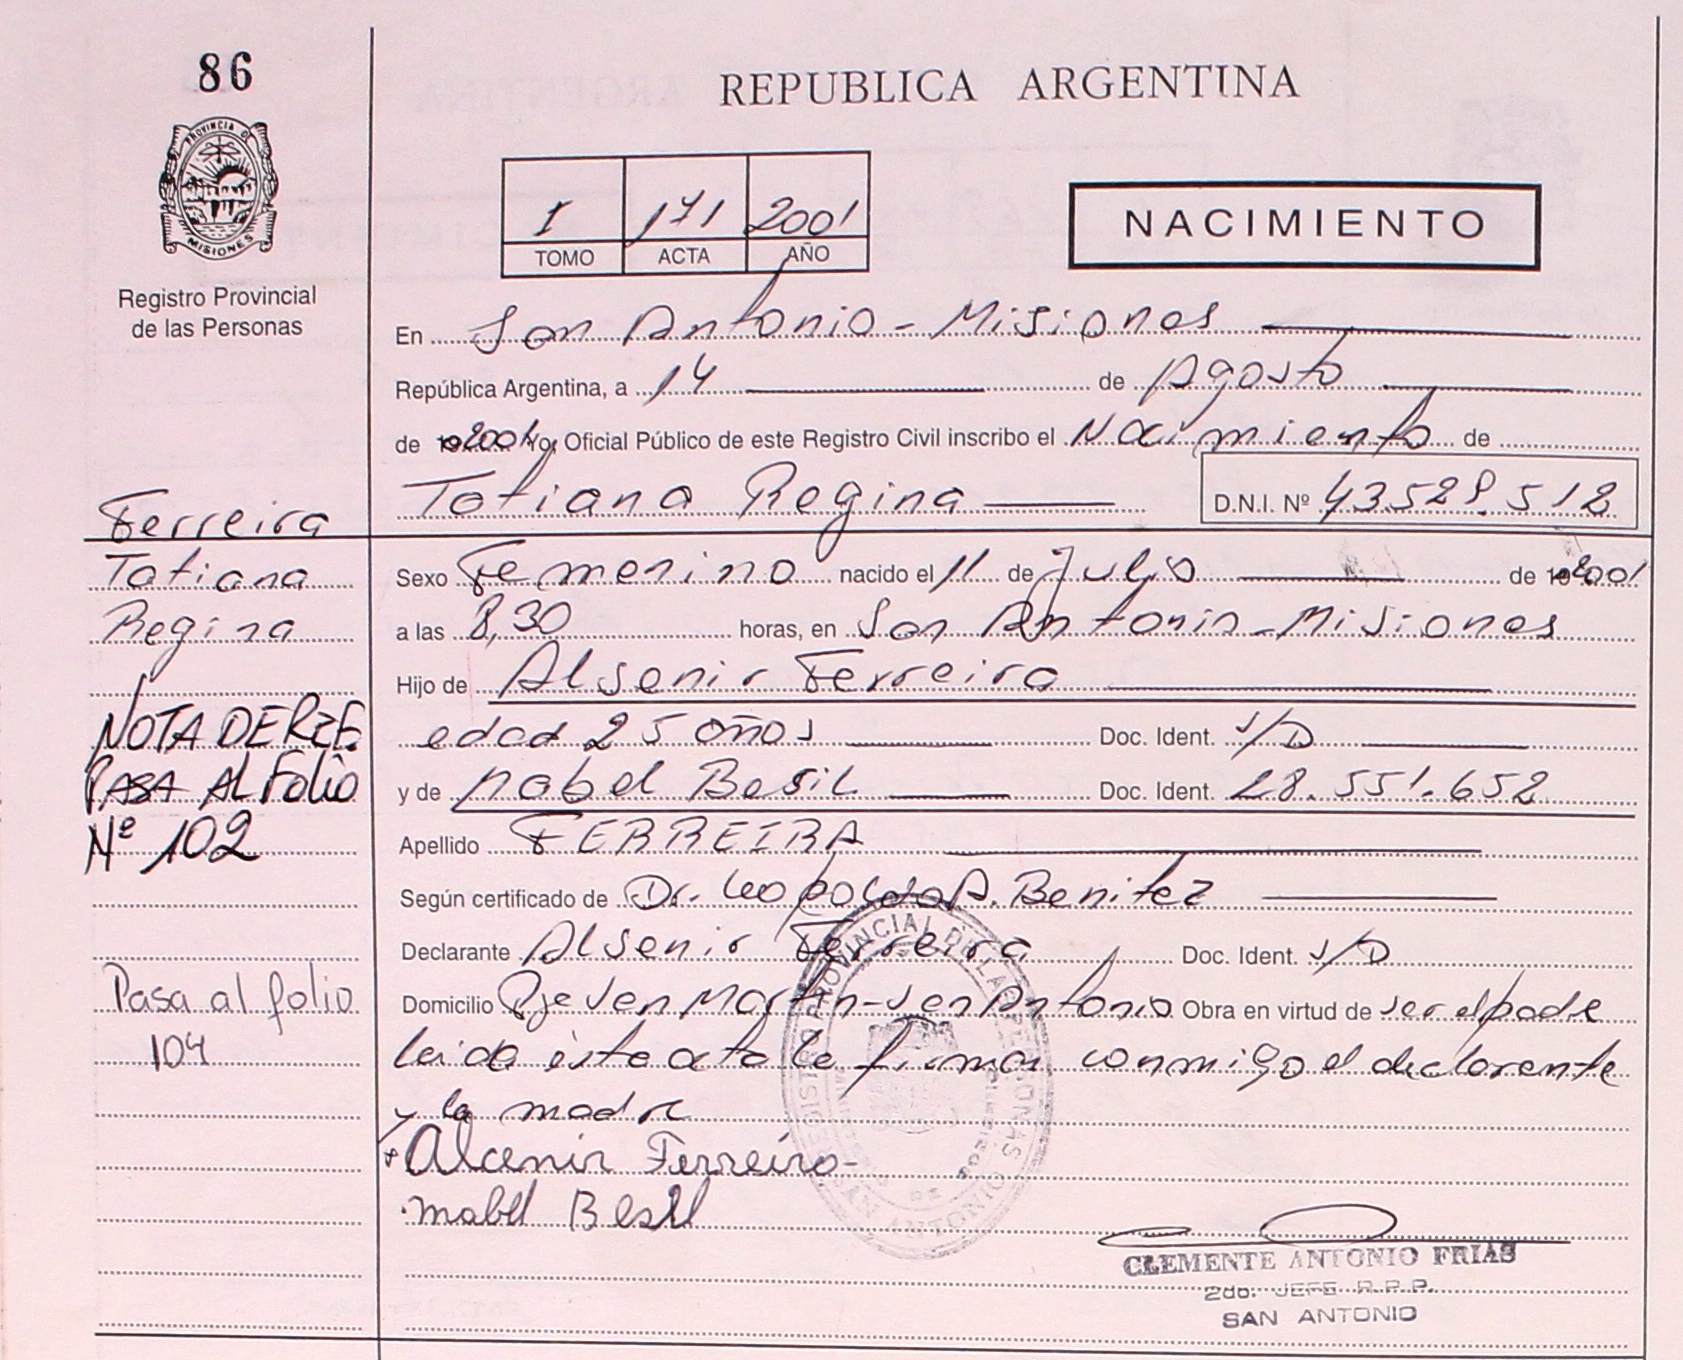 86
REPUBLICA ARGENTINA
PROVINCIA D
MISIONES
I 171 2001
TOMO ACTA AÑO
NACIMIENTO
Registro Provincial
de las Personas
En San Antonio - Misiones
República Argentina, a 14 de Agosto
de 2001 Yo, Oficial Público de este Registro Civil inscribo el Nacimiento de
Tatiana Regina D.N.I. Nº 43.528.512
Ferreira
Tatiana
Regina
Sexo Femenino nacido el 11 de Julio de 2001
a las 8,30 horas, en San Antonio - Misiones
Hijo de Alsenir Ferreira
edad 25 años Doc. Ident. S/D
y de Mabel Besil Doc. Ident. 28.551.652
NOTA DE REF.
PASA AL FOLIO
Nº 102
Apellido FERREIRA
Según certificado de Dr. Leopoldo A. Benitez
Declarante Alsenir Ferreira Doc. Ident. S/D
Domicilio Pje Sen Martin - Sen Antonio Obra en virtud de ser el padre
Pasa al folio
104
leida ésta acta la firman conmigo el declarente
y la madre
Alcenir Ferreira
Mabel Besil
REGISTRO PROVINCIAL DE LAS PERSONAS
SAN ANTONIO
CLEMENTE ANTONIO FRIAS
2do. JEFE R.P.P.
SAN ANTONIO